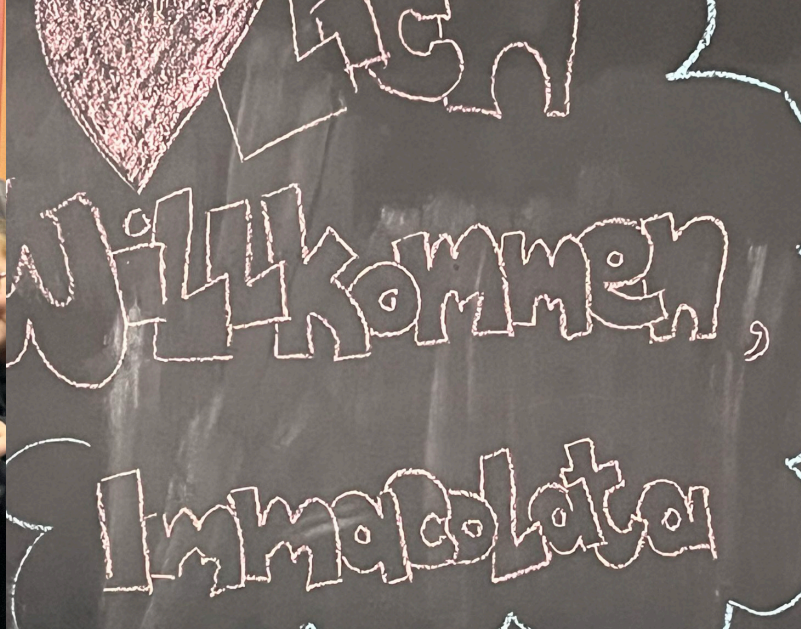 lich
Willkommen,
Immacolata